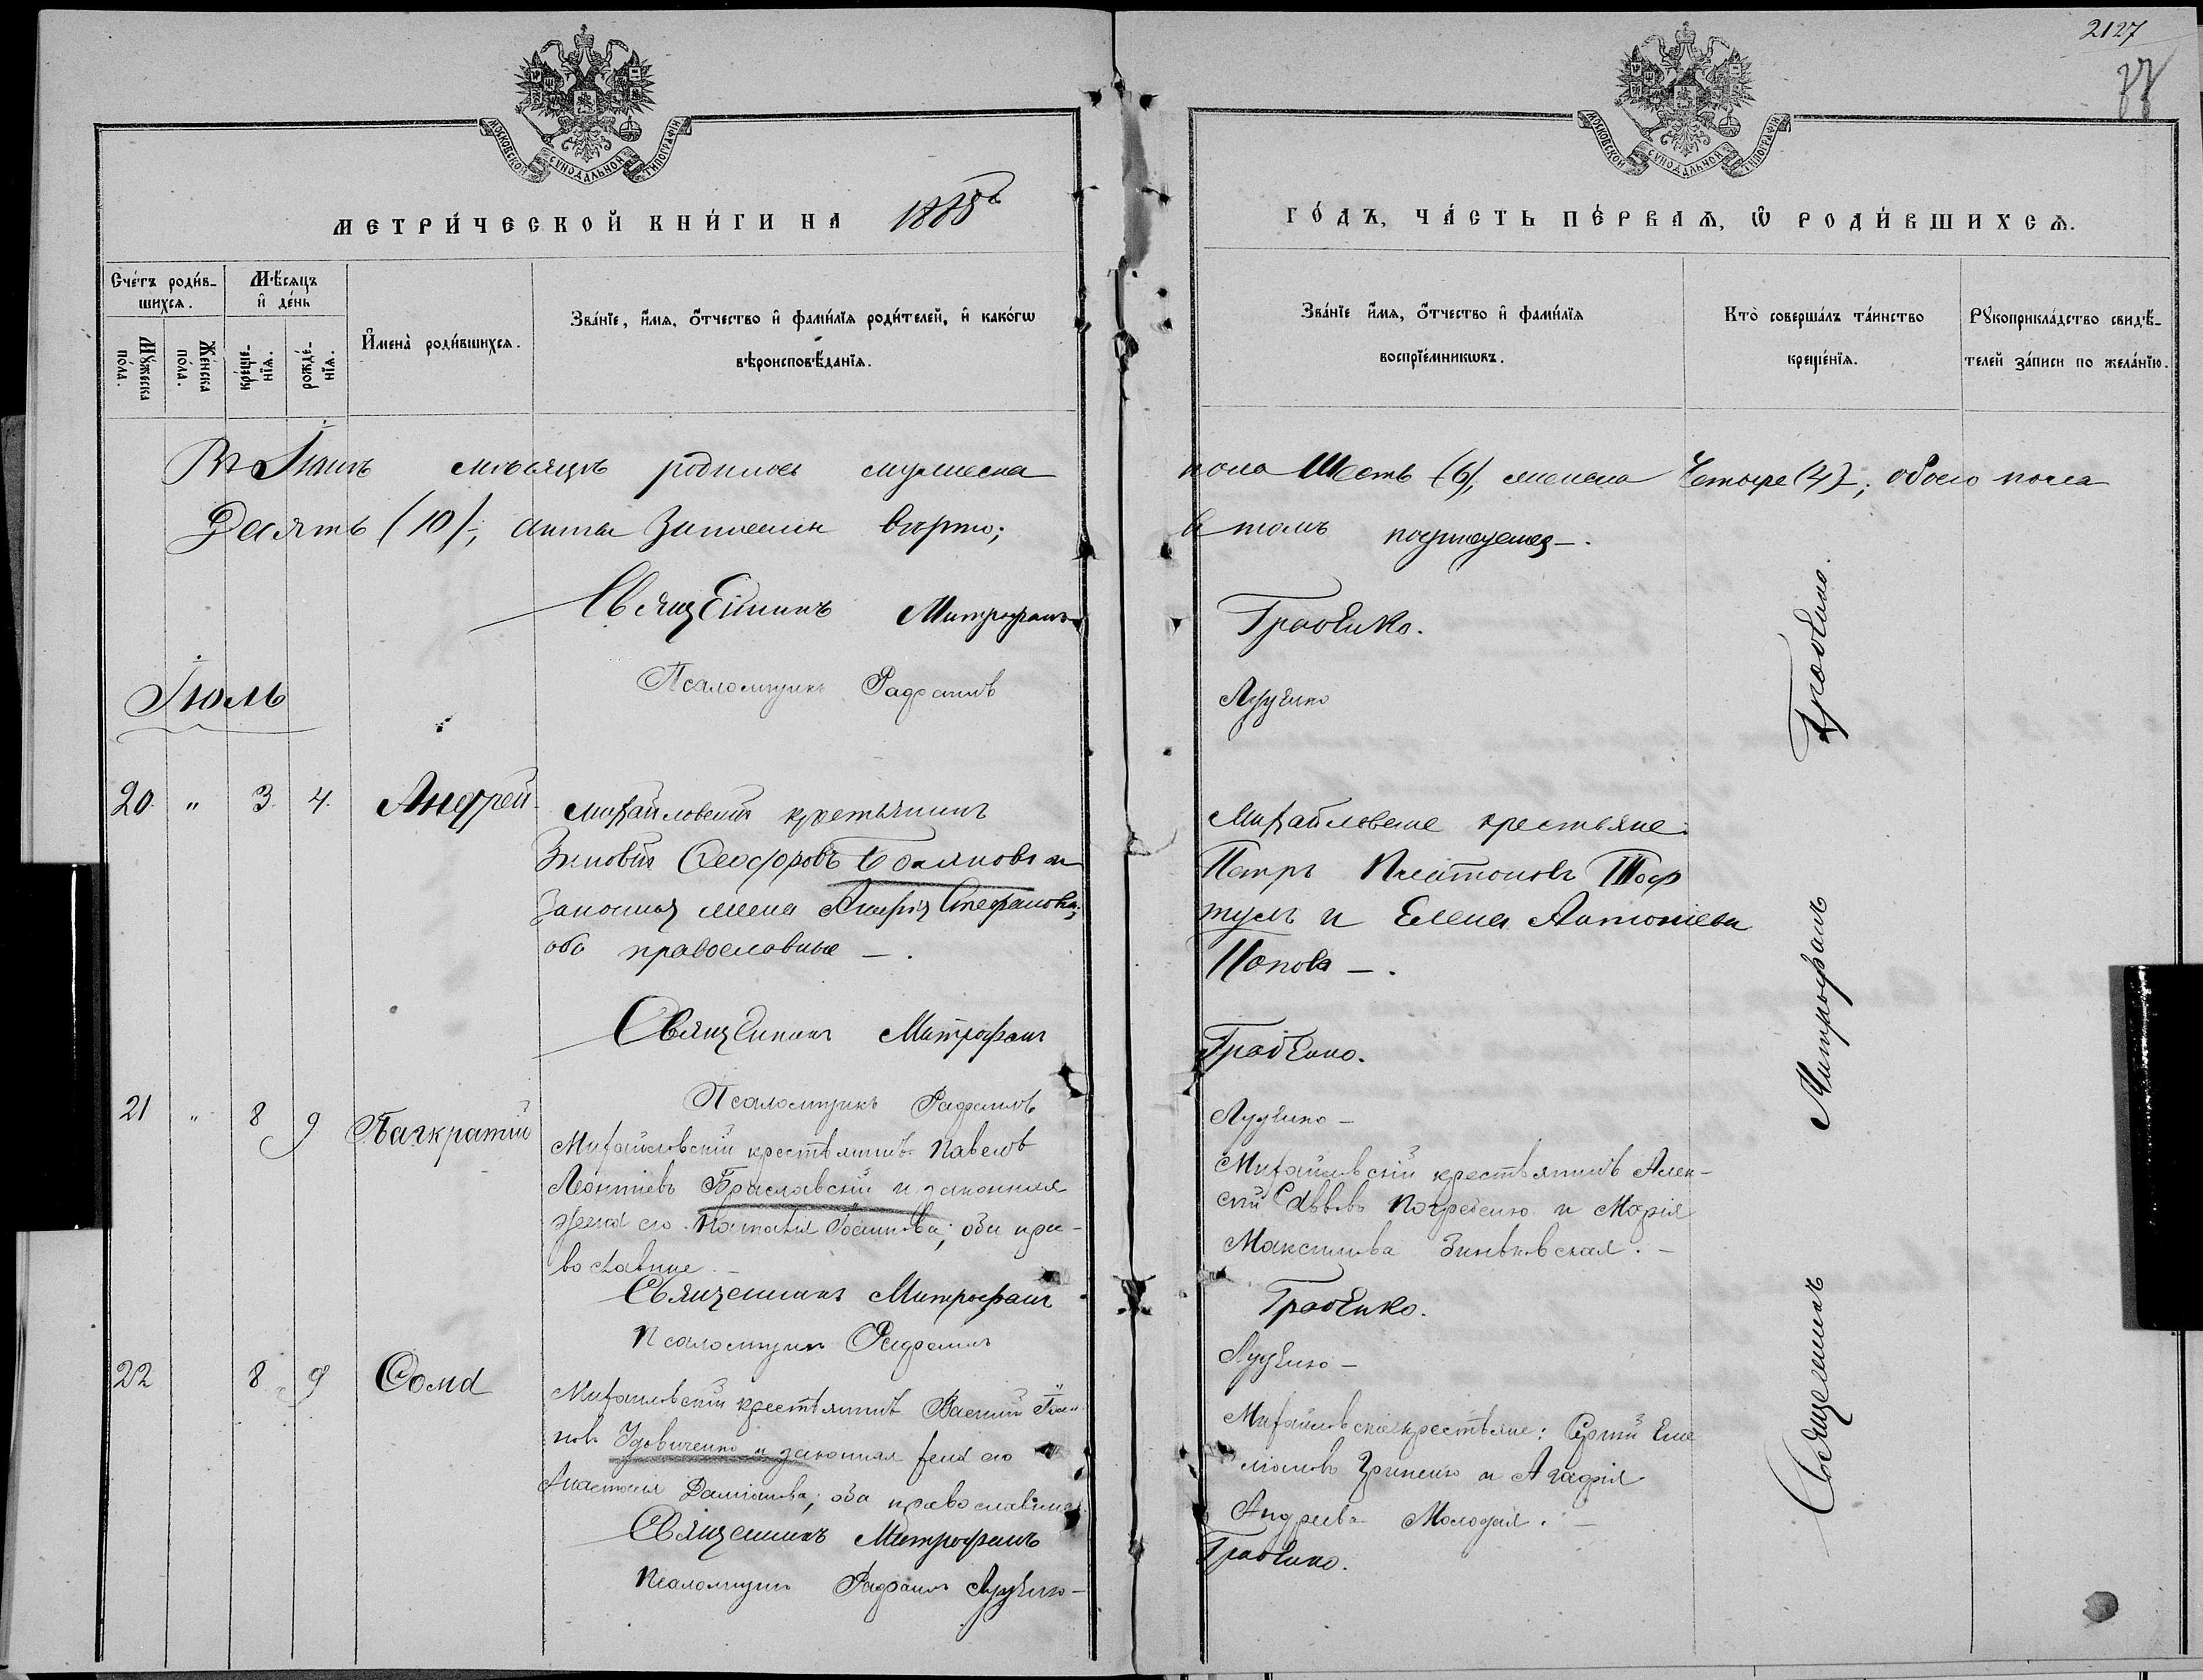 2127
МОСКОВСКОЙ СУНОДАЛЬНОЙ ТИПОГРАФІИ
МОСКОВСКОЙ СУНОДАЛЬНОЙ ТИПОГРАФІИ
МЕТРИ́ЧЕСКОЙ КНИ́ГИ НА 1885
ГО́ДЪ, ЧА́СТЬ ПЕ́РВАѦ, Ѡ҆ РОДИ́ВШИХСѦ.
Счетъ роди́в-
шихсѧ.
Мѣ́сѧцъ
и҆ де́нь
Мꙋ́жеска
по́ла.
Же́нска
по́ла.
креще́-
нїѧ.
рожде́-
нїѧ.
И҆мена̀ роди́вшихсѧ.
Зва́нїе, и҆́мѧ, ѻ҆́тчество и҆ фами́лїѧ роди́телей, и҆ како́гѡ
вѣроисповѣ́данїѧ.
Зва́нїе и҆́мѧ, ѻ҆́тчество и҆ фами́лїѧ
воспрїе́мникѡвъ.
Кто̀ соверша́лъ та́инство
креще́нїѧ.
Рꙋкоприкла́дство свидѣ́-
телей за́писи по жела́нїю.
Въ Іюнѣ мѣсяцѣ родилось мужеска пола Шесть (6), женска Четыре (4); обоего пола
Десять (10); акты записаны вѣрно; въ томъ
Священникъ Митрофанъ Грабенко.
Псаломщикъ Рафаилъ
Іюль
20 " 3. 4. Андрей
Михайловскій крестьянинъ
Зиновій Феодоровъ и
законная жена Стефанова;
оба православные —.
Михайловские крестьяне:
Петръ Платоновъ
и Елена Антоніева
Попова —.
Священникъ Митрофанъ Грабенко.
Псаломщикъ Рафаилъ
21 " 8 9 Панкратій
Михайловскій крестьянинъ Павелъ
Леонтіевъ Браславскій и законная
жена его Наталія; оба пра-
вославные. —
Михайловскій крестьянинъ Алек-
сій Саввовъ и Марія
Максимова Зиньковская. —
Священникъ Митрофанъ Грабенко.
Псаломщикъ Рафаилъ
22 8 9 Фома
Михайловскій крестьянинъ Василій
Удовиченко и законная жена его
Анастасія Даміанова; оба православные.
Михайловскіе крестьяне: Сергій Еме
ліановъ Гриценко и Агафія
Андреева Молодая. —
Священникъ Митрофанъ Грабенко.
Псаломщикъ Рафаилъ
Священникъ Митрофанъ Грабенко.